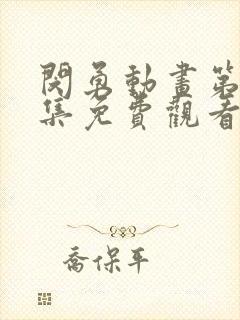 閃勇動畫第
集免費觀看
喬保平